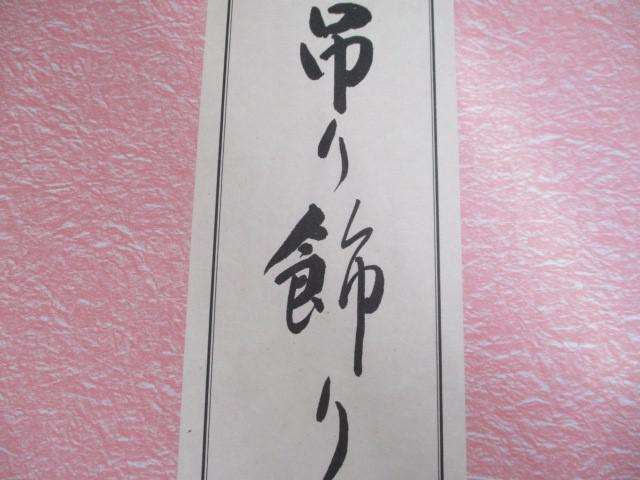 吊り飾り